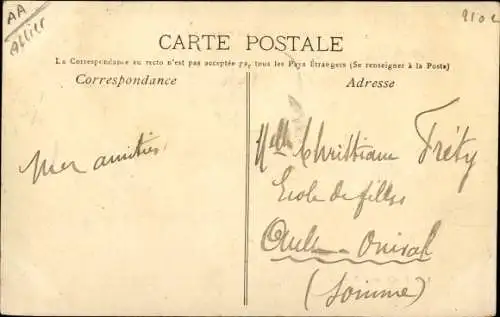 AA
Allier
CARTE POSTALE
La Correspondance au recto n'est pas acceptée par tous les Pays Étrangers (Se renseigner à la Poste)
Correspondance
Adresse
Mes amitiés
Melle Christiane Fréty
Ecole de filles
Ault-Onival
(Somme)